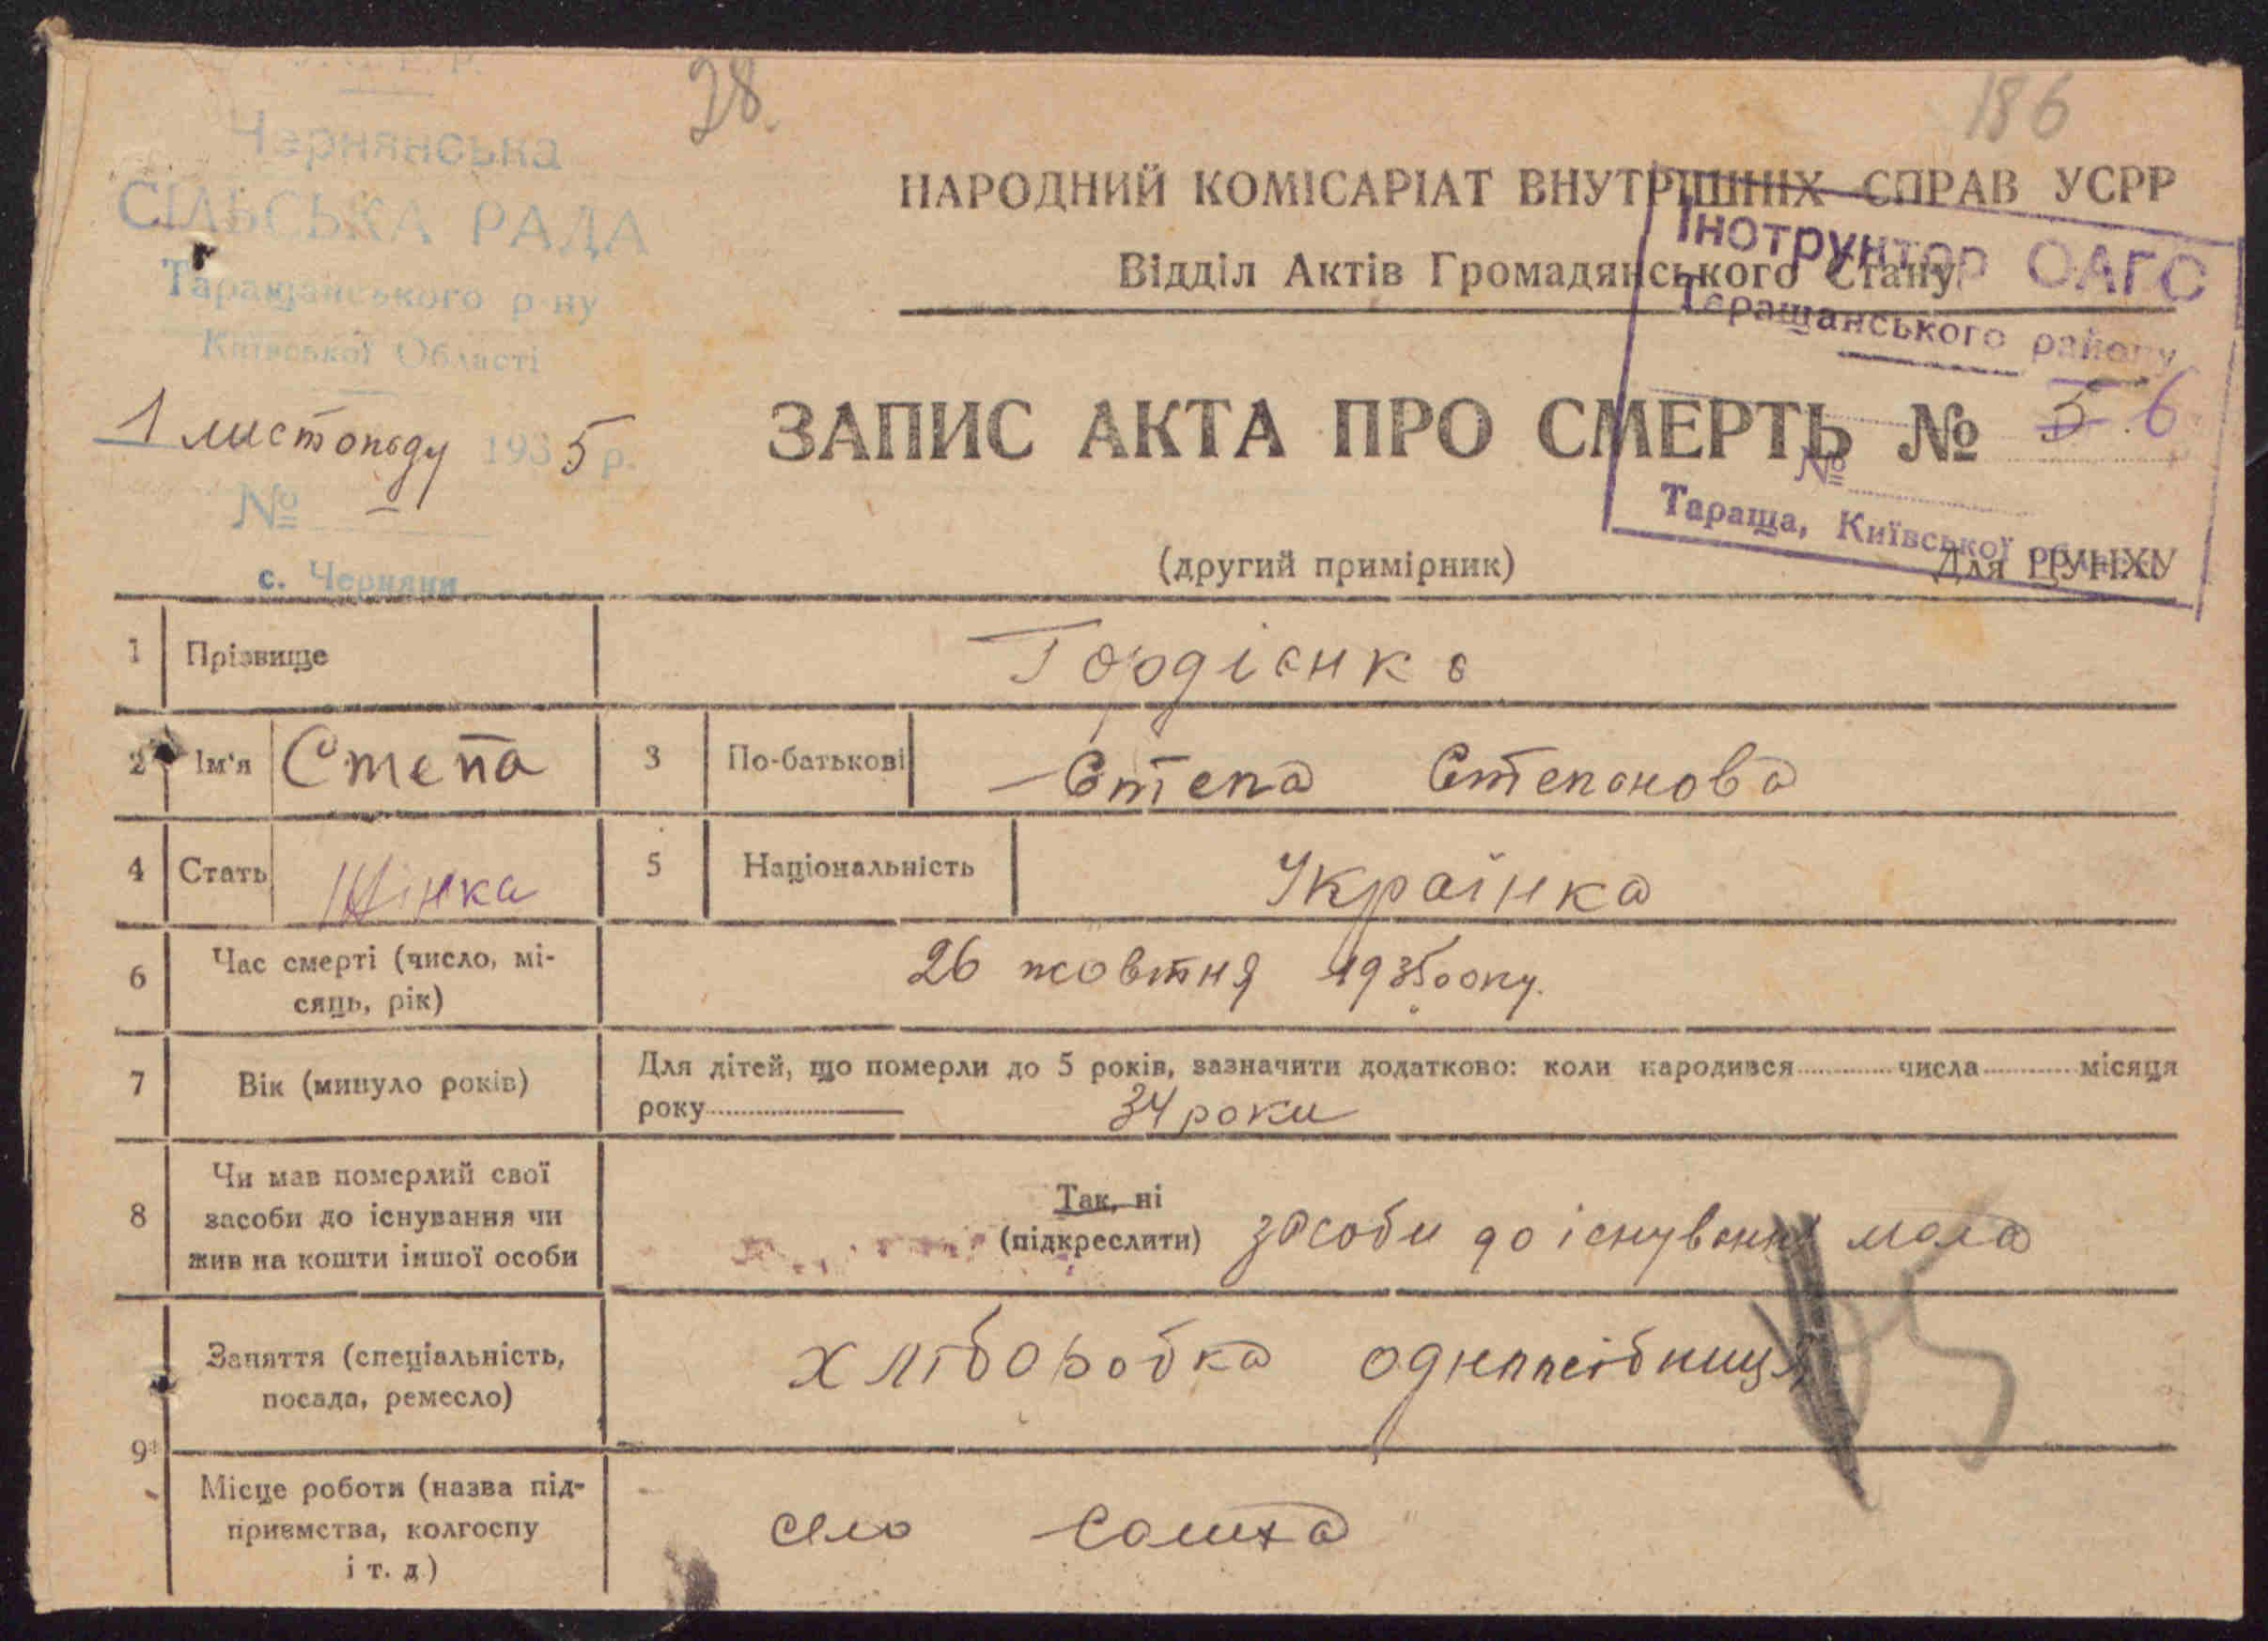 28.
186
Чернянська
СІЛЬСЬКА РАДА
Таращанського р-ну
Київської Області
1 листопаду 1935 р.
№
с. Черняни
НАРОДНИЙ КОМІСАРІАТ ВНУТРІШНІХ СПРАВ УСРР
Відділ Актів Громадянського Стану
Інструктор ОАГС
Таращанського району
№
Тараща, Київської
ЗАПИС АКТА ПРО СМЕРТЬ № 5 6
(другий примірник)
Для ЦУНХУ
1 Прізвище Гордієнко
2 Ім'я Степа 3 По-батькові Степа Степанова
4 Стать Жінка 5 Національність Українка
6 Час смерті (число, мі-
сяць, рік) 26 жовтня 1935 року.
7 Вік (минуло років) Для дітей, що померли до 5 років, зазначити додатково: коли народився числа місяця
року 34 роки
8 Чи мав померлий свої
засоби до існування чи
жив на кошти іншої особи
Так, ні
(підкреслити) засоби до існування мала
9 Заняття (спеціальність,
посада, ремесло) хліборобка
Місце роботи (назва під-
приємства, колгоспу
і т. д.) село